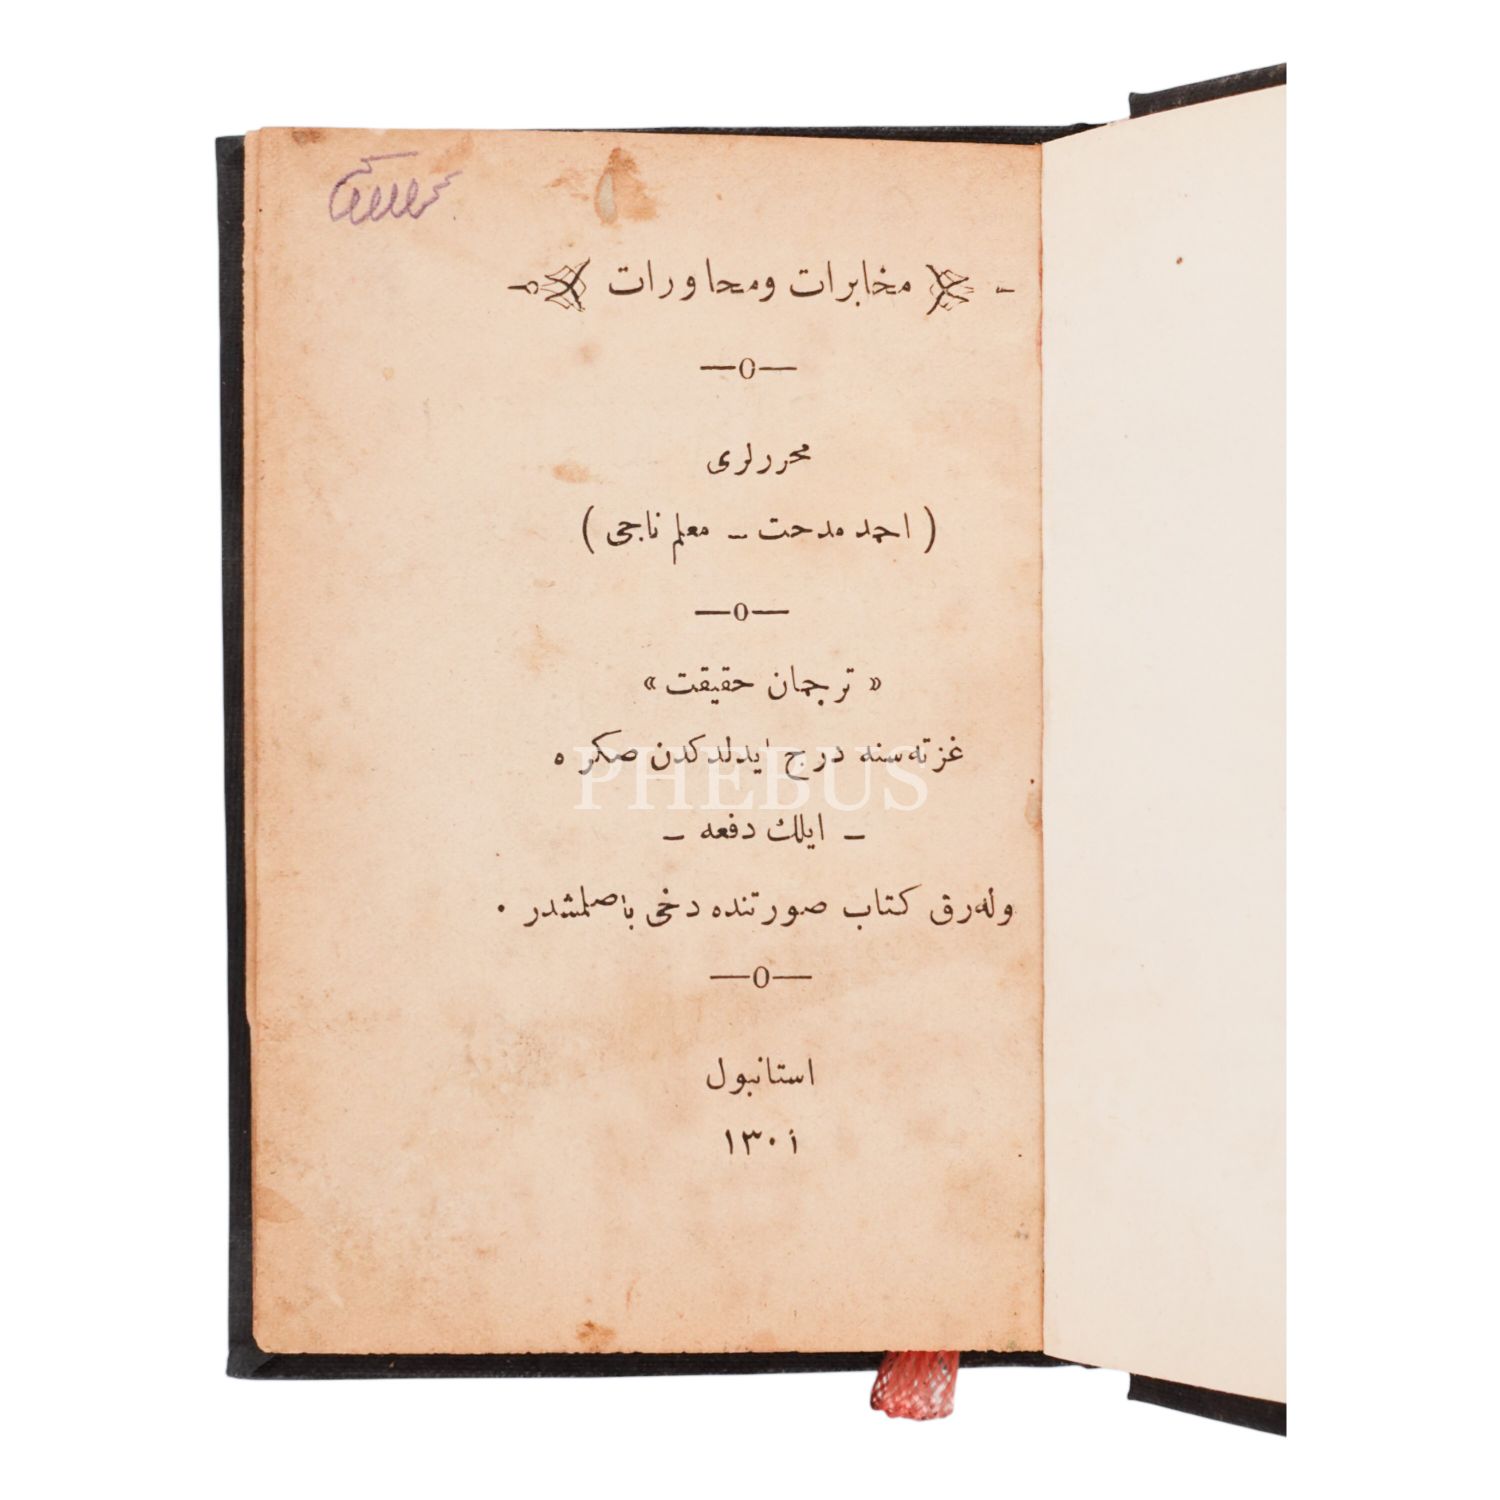 مخابرات ومحاورات
محررلری
( احمد مدحت ـ معلم ناجی )
« ترجمان حقیقت »
غزته‌سنه درج ایدلدکدن صکره
PHEBUS
ـ ایلك دفعه ـ
وله‌رق کتاب صورتنده دخی باصلمشدر .
استانبول
١٣٠١